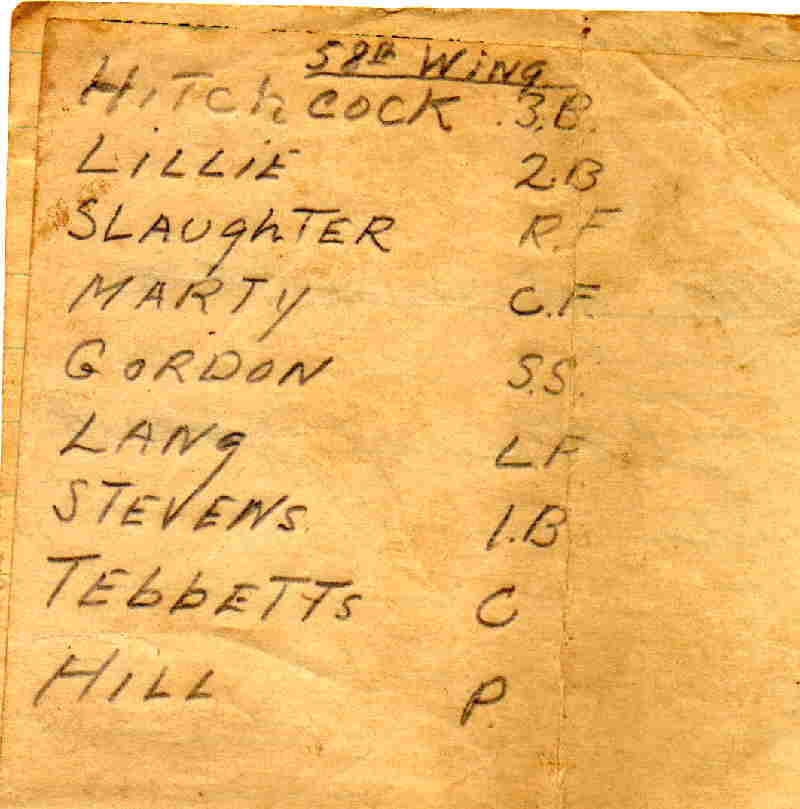 58th WING
HITChCOCK 3.B.
LiLLiE 2.B
SLAUghTER R.F
MARTY C.F.
GORDON S.S.
LANg L F
STEVENS 1.B
TEbbETTs C
HILL P.